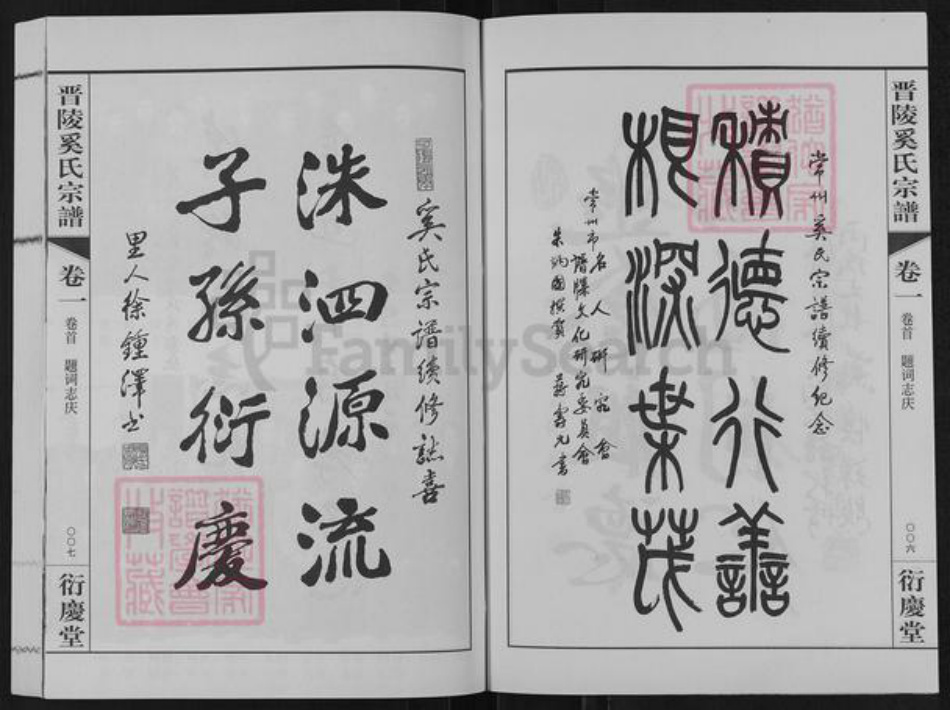 晋陵奚氏宗譜
卷一
卷首 题词志庆
〇〇六
衍慶堂
常州奚氏宗譜續修紀念
積德行善
根深葉茂
常州市名人研究會
譜牒文化研究委員會
撰賀 蔣壽元書
奚氏宗譜續修誌喜
洙泗源流
子孫衍慶
里人徐鍾澤书
晋陵奚氏宗譜
卷一
卷首 题词志庆
〇〇七
衍慶堂
FamilySearch